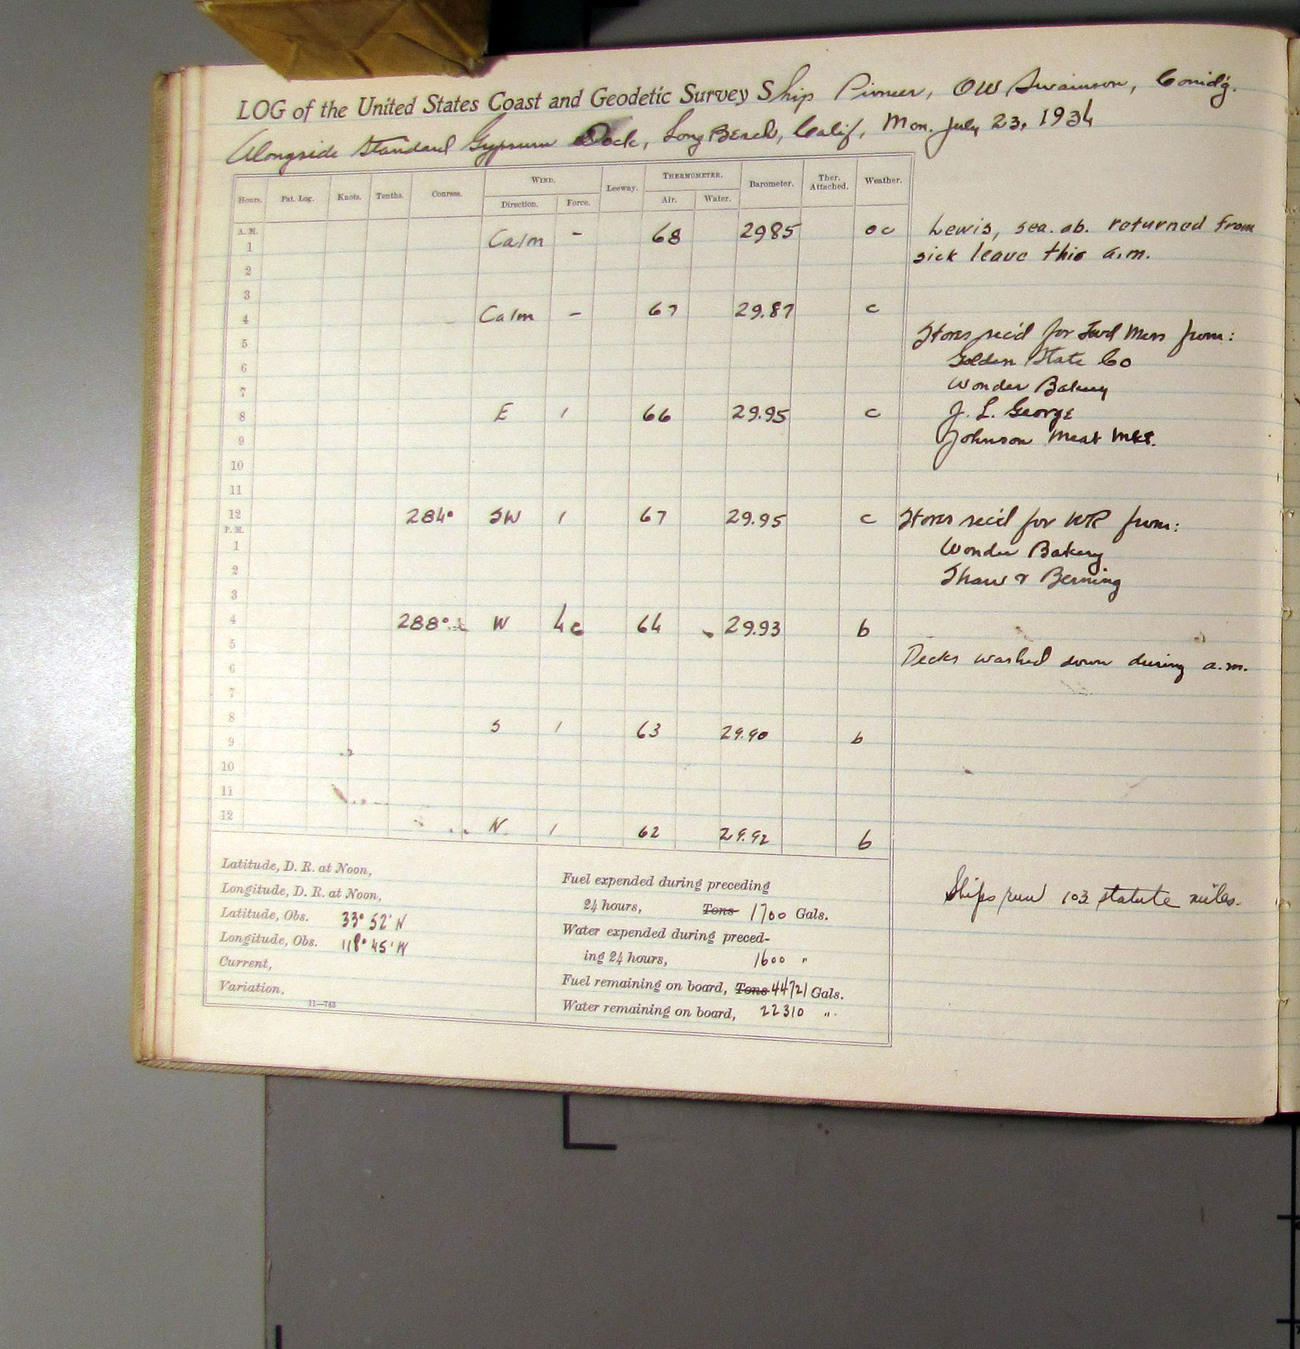 LOG of the United States Coast and Geodetic Survey Ship Pioneer, OW Swainson, Comd'g.
Alongside Standard Gypsum Dock, Long Beach, Calif, Mon. July 23, 1934
Hours. Pat. Log. Knots. Tenths. Courses. WIND. Leeway. THERMOMETER. Barometer. Ther. Attached. Weather.
Direction. Force. Air. Water.
A. M.
1 Calm - 68 2985 oc Lewis, sea. ab. returned from
2 sick leave this a.m.
3
4 Calm - 67 29.87 c
5 Stores rec'd for Fwd Mess from:
6 Golden State Co
7 Wonder Bakery
8 E 1 66 29.95 c J. L. George
9 Johnson Meat Mkt.
10
11
12 284° SW 1 67 29.95 c Stores rec'd for WR from:
P. M.
1 Wonder Bakery
2 Shaw & Berning
3
4 288° W 4 64 29.93 b
5 Decks washed down during a.m.
6
7
8 S 1 63 29.90 b
9
10
11
12 N. 1 62 29.92 b
Latitude, D. R. at Noon,
Longitude, D. R. at Noon,
Latitude, Obs. 33° 52' N
Longitude, Obs. 118° 45' W
Current,
Variation,
11—763
Fuel expended during preceding
24 hours, Tons 1700 Gals.
Water expended during preced-
ing 24 hours, 1600 "
Fuel remaining on board, Tons 44721 Gals.
Water remaining on board, 22310 "
Ships run 103 statute miles.